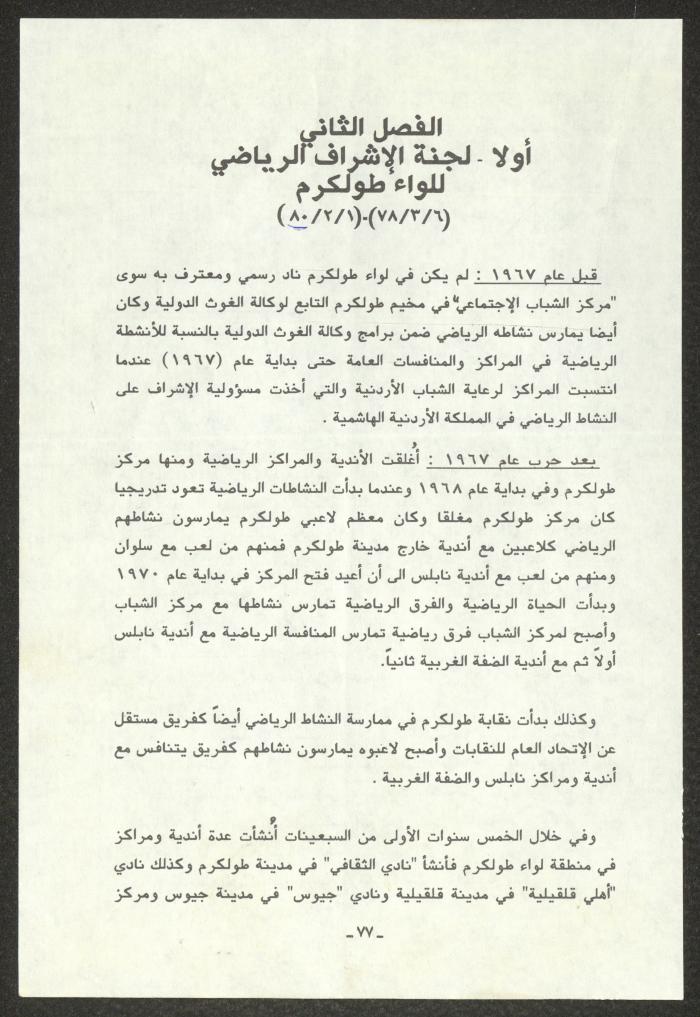 الفصل الثاني
أولا - لجنة الإشراف الرياضي
للواء طولكرم
(٧٨/٣/٦)-(٨٠/٢/١)
قبل عام ١٩٦٧ : لم يكن في لواء طولكرم ناد رسمي ومعترف به سوى
"مركز الشباب الإجتماعي" في مخيم طولكرم التابع لوكالة الغوث الدولية وكان
أيضا يمارس نشاطه الرياضي ضمن برامج وكالة الغوث الدولية بالنسبة للأنشطة
الرياضية في المراكز والمنافسات العامة حتى بداية عام (١٩٦٧) عندما
انتسبت المراكز لرعاية الشباب الأردنية والتي أخذت مسؤولية الإشراف على
النشاط الرياضي في المملكة الأردنية الهاشمية .
بعد حرب عام ١٩٦٧ : أُغلقت الأندية والمراكز الرياضية ومنها مركز
طولكرم وفي بداية عام ١٩٦٨ وعندما بدأت النشاطات الرياضية تعود تدريجيا
كان مركز طولكرم مغلقا وكان معظم لاعبي طولكرم يمارسون نشاطهم
الرياضي كلاعبين مع أندية خارج مدينة طولكرم فمنهم من لعب مع سلوان
ومنهم من لعب مع أندية نابلس الى أن أعيد فتح المركز في بداية عام ١٩٧٠
وبدأت الحياة الرياضية والفرق الرياضية تمارس نشاطها مع مركز الشباب
وأصبح لمركز الشباب فرق رياضية تمارس المنافسة الرياضية مع أندية نابلس
أولاً ثم مع أندية الضفة الغربية ثانياً.
وكذلك بدأت نقابة طولكرم في ممارسة النشاط الرياضي أيضاً كفريق مستقل
عن الإتحاد العام للنقابات وأصبح لاعبوه يمارسون نشاطهم كفريق يتنافس مع
أندية ومراكز نابلس والضفة الغربية .
وفي خلال الخمس سنوات الأولى من السبعينات أُنشأت عدة أندية ومراكز
في منطقة لواء طولكرم فأنشأ "نادي الثقافي" في مدينة طولكرم وكذلك نادي
"أهلي قلقيلية" في مدينة قلقيلية ونادي "جيوس" في مدينة جيوس ومركز
ـ ٧٧ ـ